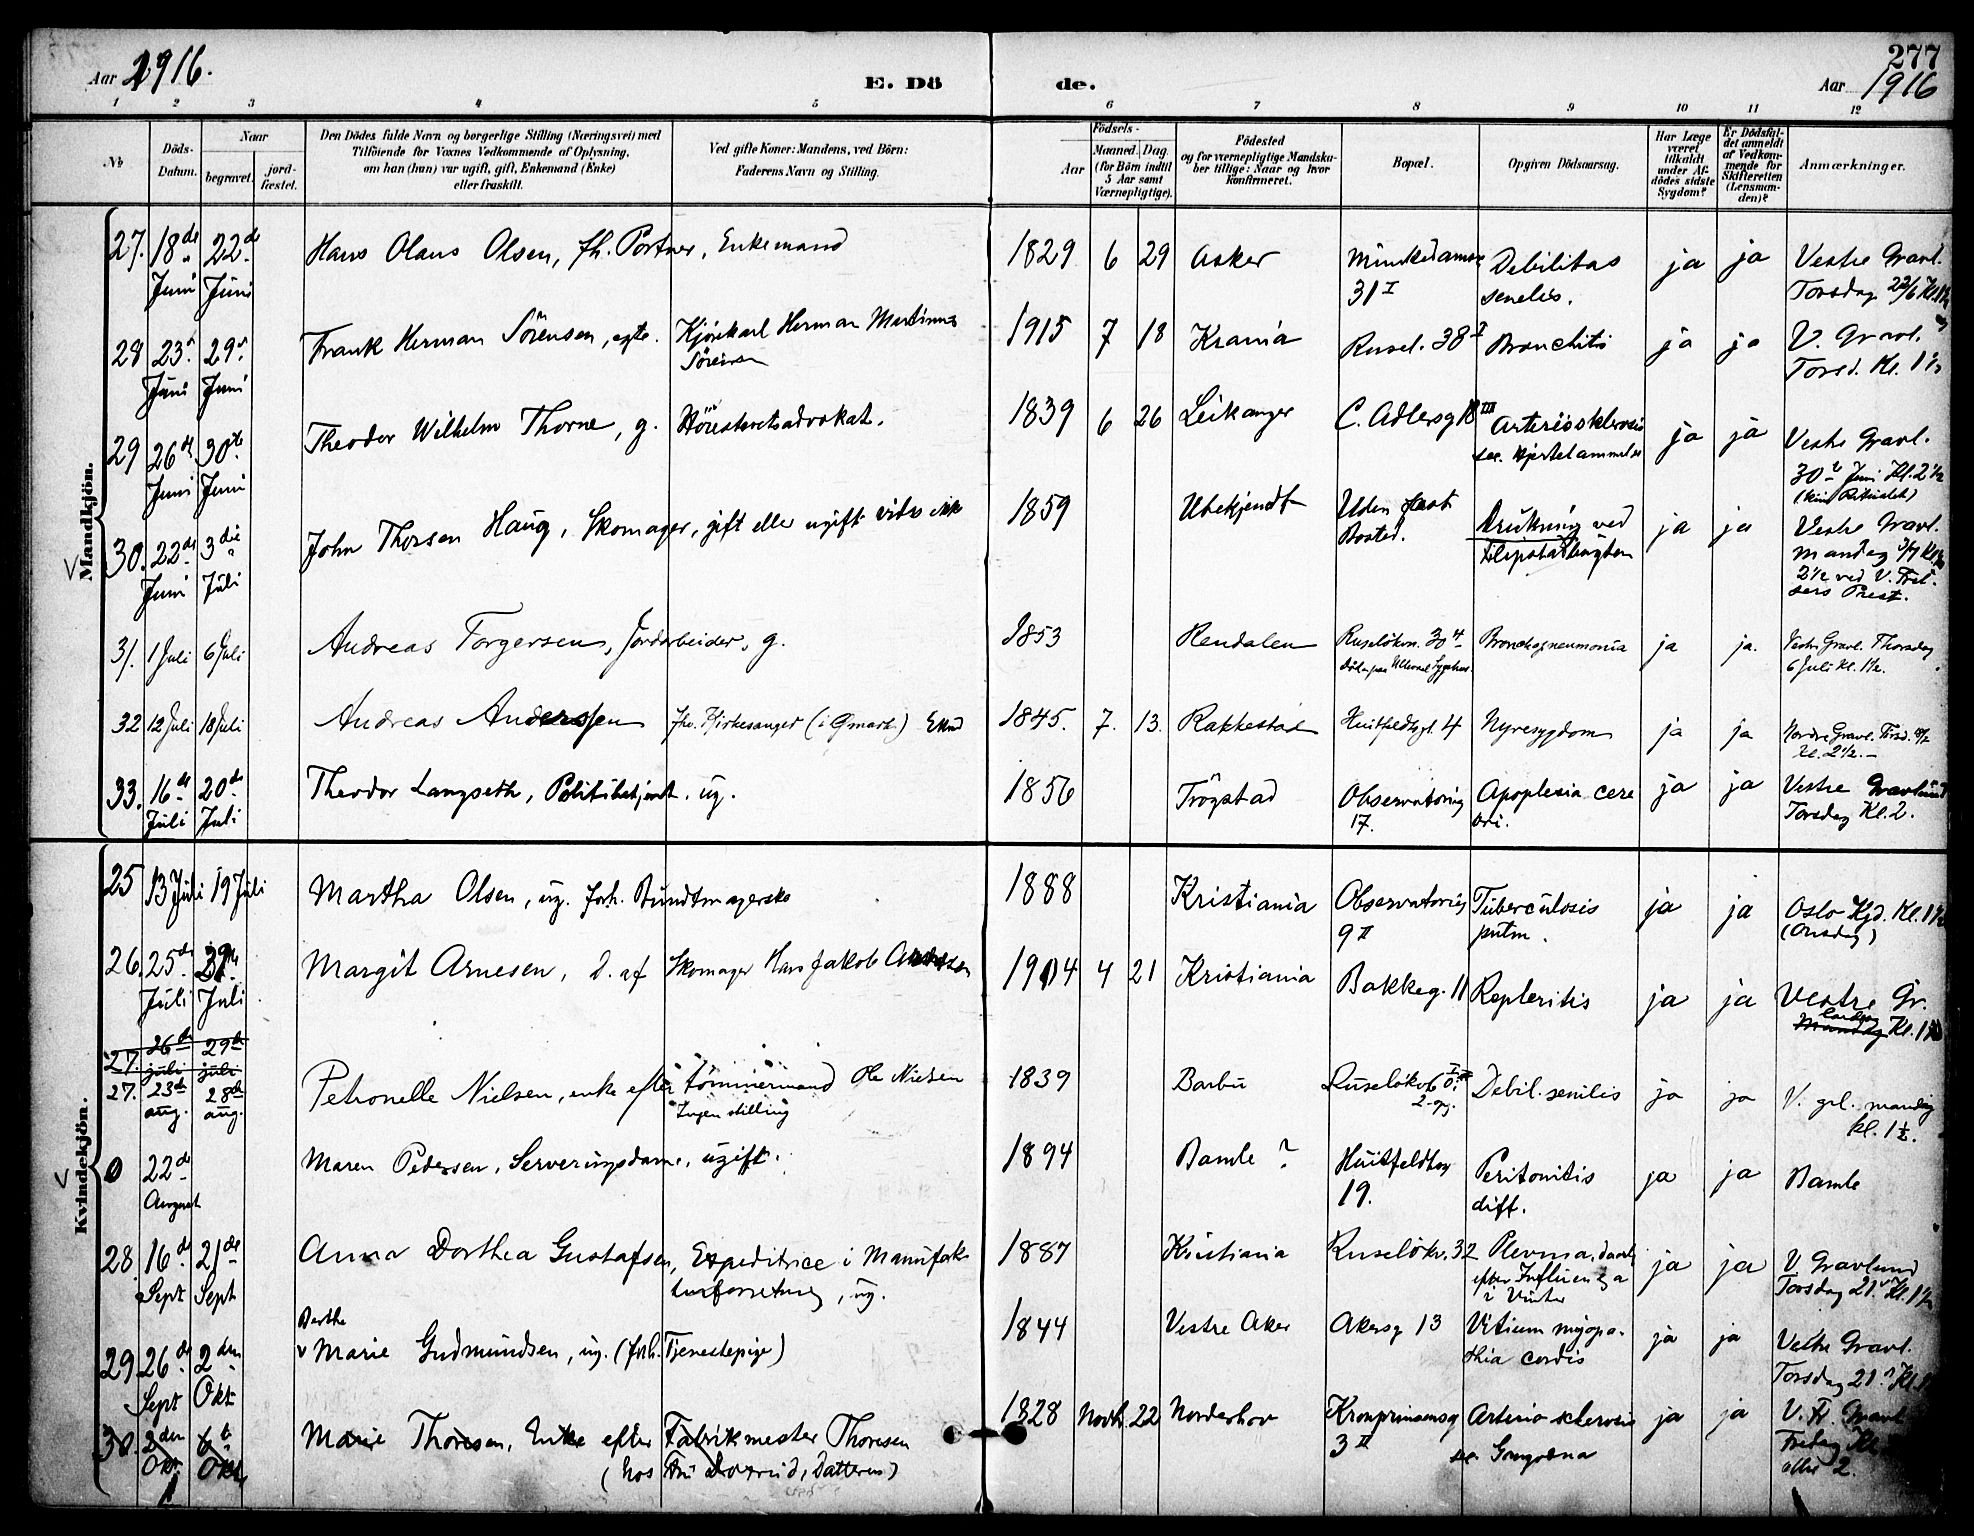 277
Aar 1916.
E. Döde.
Aar 1916
1 2 3 4 5 6 7 8 9 10 11 12
No
Döds-Datum.
Naar
begravet.
jord-fæstet.
Den Dödes fulde Navn og borgerlige Stilling (Næringsvei) med
Tilföiende for Voxnes Vedkommende af Oplysning,
om han (hun) var ugift, gift, Enkemand (Enke)
eller fraskilt.
Ved gifte Koner: Mandens, ved Börn:
Faderens Navn og Stilling.
Födsels-
Aar
Maaned. Dag
(for Börn indtil
5 Aar samt
Værnepligtige).
Födested
og for værnepligtige Mandska-
ber tillige: Naar og hvor
Konfirmeret.
Bopæl.
Opgiven Dödsaarsag.
Har Læge
været
tilkaldt
under Af-
dödes sidste
Sygdom?
Er Dödsfal-
det anmeldt
af Vedkom-
mende for
Skifteretten
(Lensman-
den)?
Anmærkninger.
Mandkjön.
27. 18de Juni 22de Juni Hans Olaus Olsen, fh. Portner, Enkemand 1829 6 29 Asker Munkedamsv 31 I Debilitas senilis. ja ja Vestre Gravl. Torsdag 22/6
28 23 Juni 29 Juni Frank Herman Sörensen, egte. Kjörekarl Herman Martinius Sörensen 1915 7 18 Krania Rusel. 38 I Bronchitis ja ja V. Gravl. Torsd. Kl. 1 1/2
29 26de Juni 30te Juni Theodor Wilhelm Thorne, g. Höiesteretsadvokat. 1839 6 26 Leikanger C. Adlersg 18 III Arteriosklerosis sec. Hjertelammelse ja ja Vestre Gravl. 30 Juni Kl. 2 1/2 (kun Ritualet)
30. 22de Juni 3die Juli John Thorsen Haug, Skomager, gift eller ugift vides ikke 1859 Ubekjendt Uden fast Bosted. Drukning ved Filipstadbugten ja ja Vestre Gravl. Mandag 3/7 2 1/2 ved V. Frelsers Prest.
31. 1 Juli 6 Juli Andreas Torgersen, Jordarbeider, g. 1853 Rendalen Ruselökvn. 30 4 död paa Ulleval Sygehus. Bronchopneumonia ja ja. Vestre Gravl. Thorsdag 6 Juli kl. 1 1/2.
32 12 Juli 18 Juli Andreas Anderssen fhv. Kirkesanger Ekmd 1845. 7. 13. Rakkestad Huitfeldtsgt. 4 Nyresygdom ja ja Nordre Gravl. kl. 2 1/2.
33. 16de Juli 20de Juli Theodor Langseth, Politibetjent, ug. 1856 Trögstad Observatorieg 17. Apoplexia cerebri. ja ja Vestre Gravlund Torsdag Kl. 2.
Kvindekjön.
25 13 Juli 19 Juli Martha Olsen, ug. forh. Buntmagerske 1888 Kristiania Observatorieg 9 II Tuberculosis pulm. ja ja Oslo Kgd. Kl. 1 1/2 (Onsdag)
26. 25de Juli Juli Margit Arnesen, D. af Skomager Hans Jakob 1904 4 21 Kristiania Bakkeg. 11 ja ja Vestre Gr. Mandag Kl. 1
27. 26de juli 29de juli
27. 23de aug. 28de aug. Petronelle Nielsen, enke efter tömmermand Ole Nielsen Ingen stilling 1839 Barbu Ruselökv 2 opg. Debil. senilis ja ja V. grl. mandag kl. 1 1/2.
0 22de August Maren Pedersen, Serveringsdame, ugift. 1894 Bamle ? Huitfeldtsg 19. Peritonitis diff. ja ja Bamle
28. 16de Sept 21de Sept Anna Dorthea Gustafsen, Expeditrice i Manufakturforretning, ug. 1887 Kristiania Ruselökv. 32 efter Influenza i Vinter ja ja V. Gravlund Torsdag 21 Kl. 1 1/2
29 26de Sept 2den Okt Berthe Marie Gudmundsen, ug. (forh. Tjenestepige) 1844 Vestre Aker Akersg 13 Vitium myopathia cordis ja ja Vestre Gravl. Torsdag 21
30. 2den Okt 6te Okt Marie Thoresen, Enke efter Fabrikmester Thoresen (hos Datteren) 1828 Novbr. 22 Norderhov Kronprinsensg 3 II Arterio sklerosis sec. Gangræna ja ja V. Fr. Gravl Fredag Kl 2.